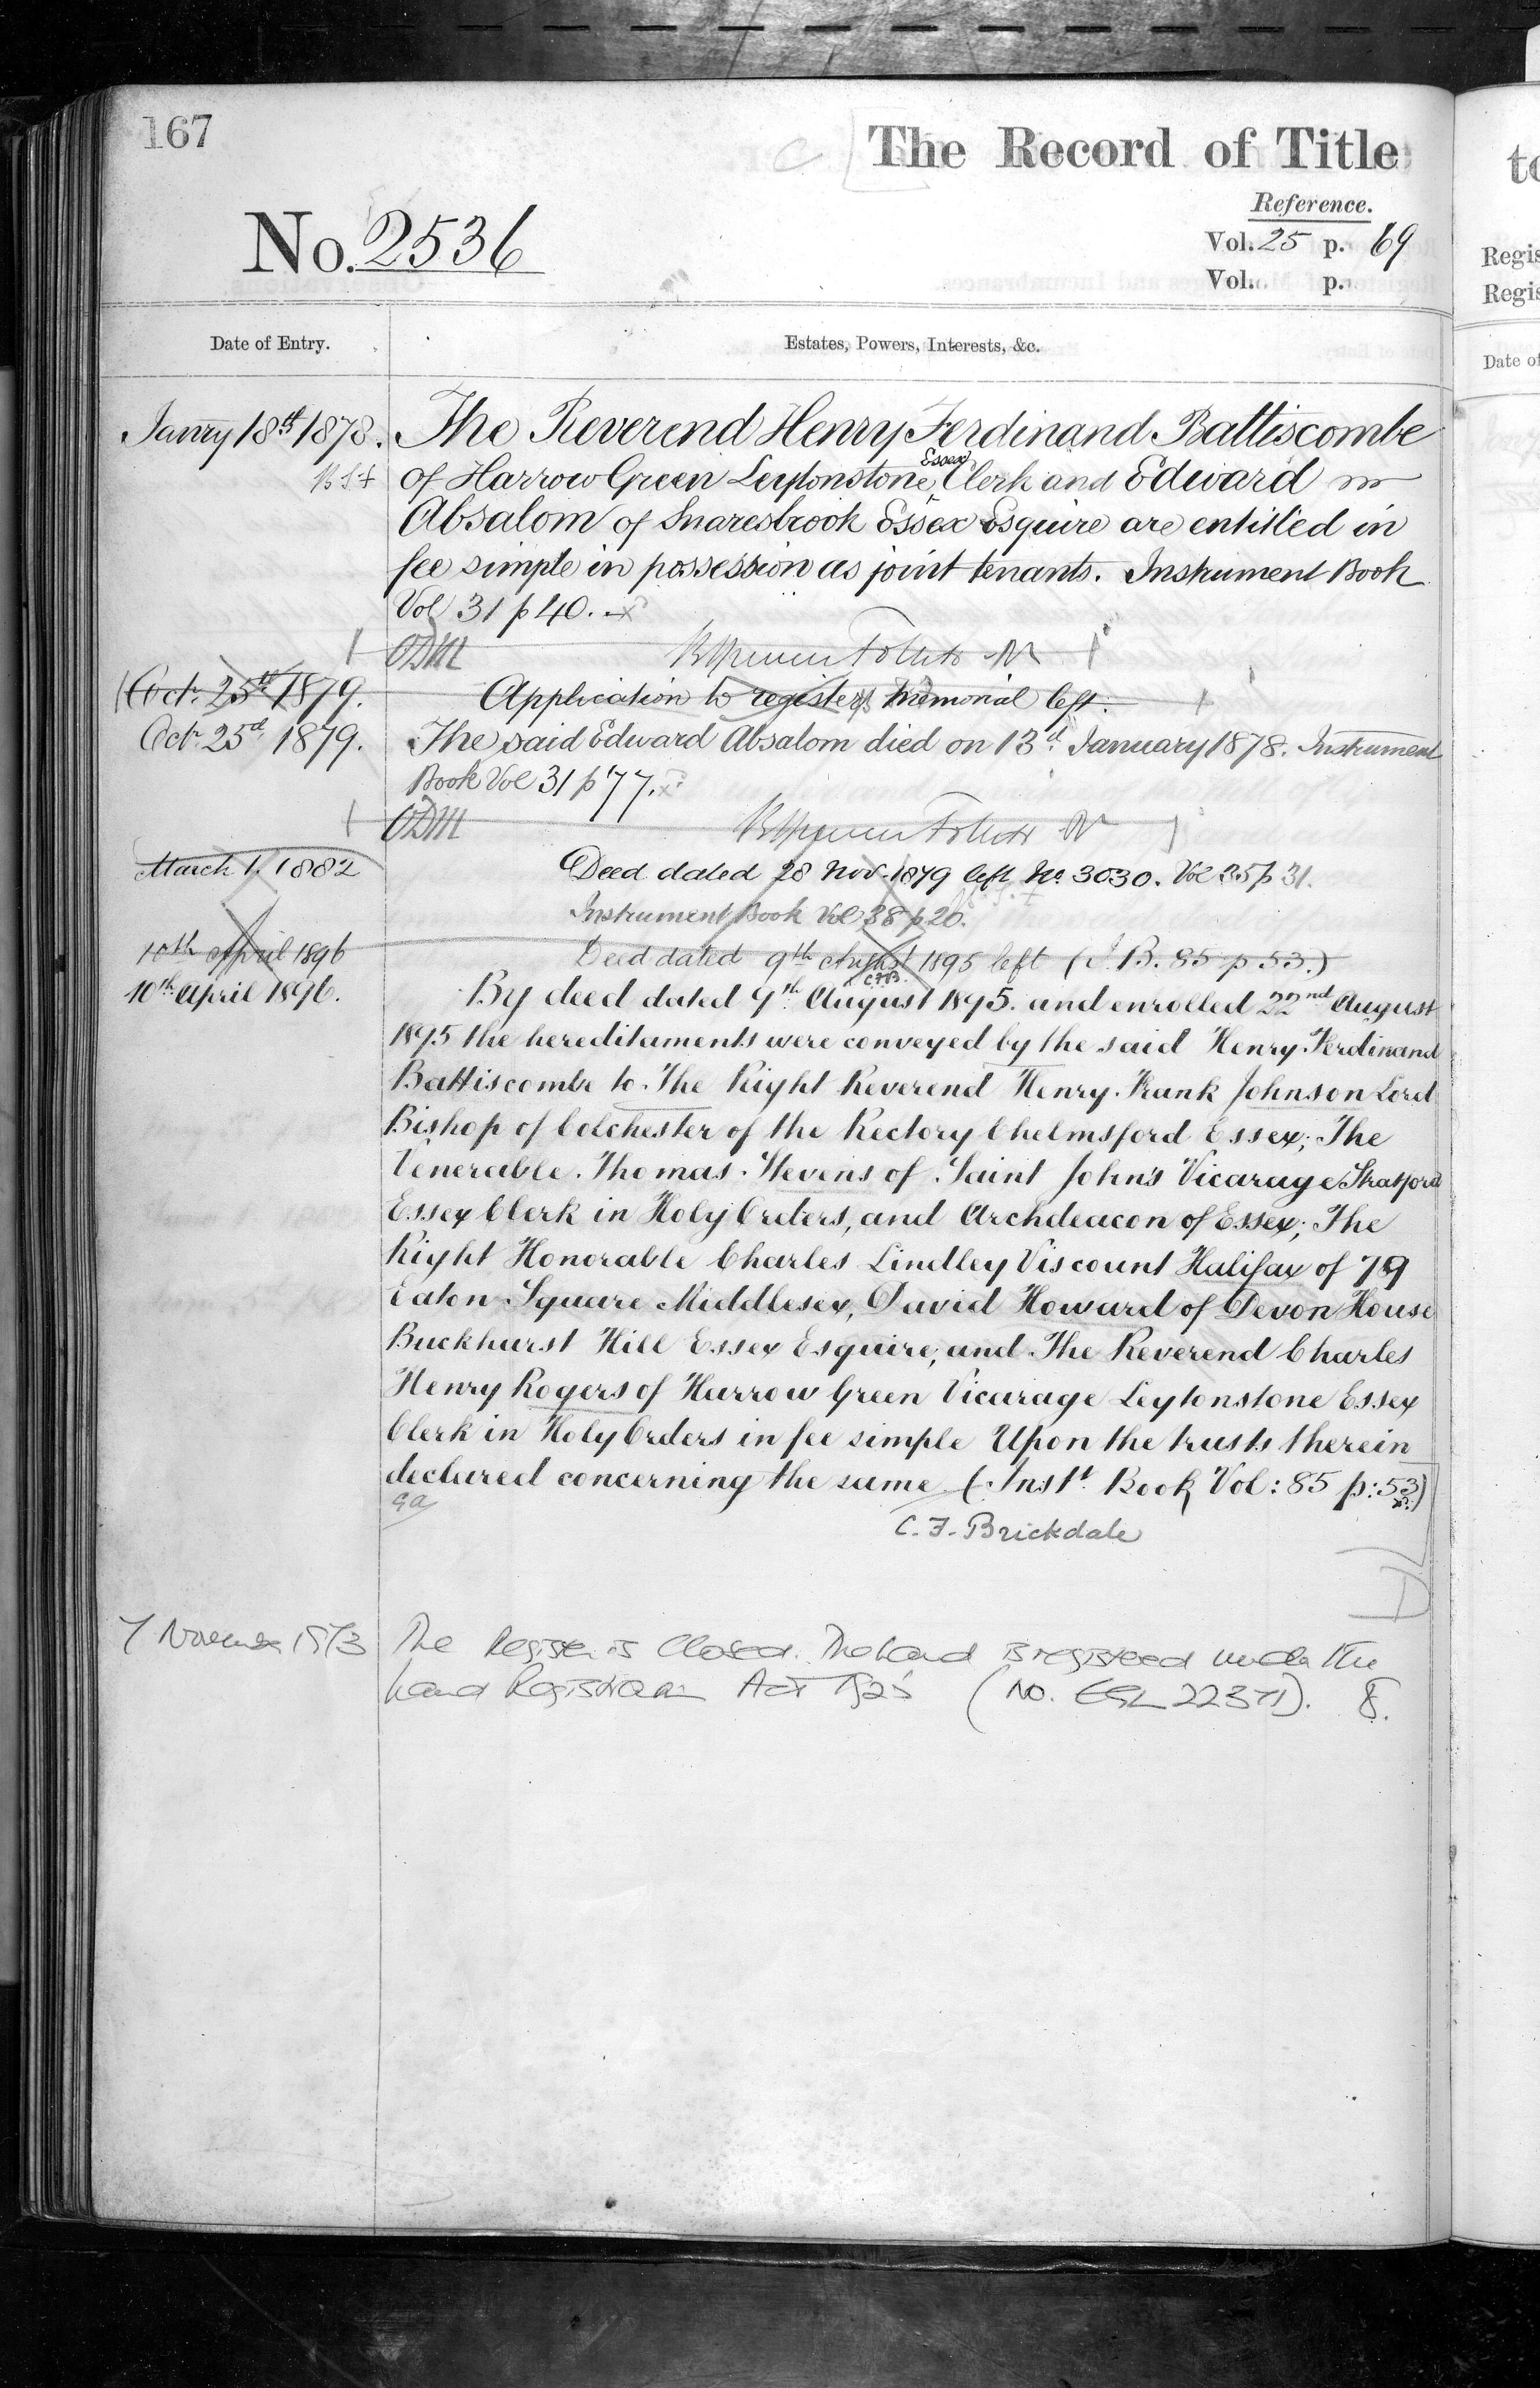 167
The Record of Title
Reference.
No. 2536
Vol. 25 p. 69
Vol. p.
Date of Entry.
Estates, Powers, Interests, &c.
Janry 18th 1878. The Reverend Henry Ferdinand Battiscombe
of Harrow Green Leytonstone, Essex Clerk and Edward
Absalom of Snaresbrook Essex Esquire are entitled in
fee simple in possession as joint tenants. Instrument Book
Vol 31 p 40.
Octr. 25th 1879. Application to register memorial left.
Octr 25d 1879. The said Edward Absalom died on 13d. January 1878. Instrument
Book Vol 31 p 77.
March 1. 1882 Deed dated 28 Nov. 1879 left No. 3030. Vol 35 p 31.
Instrument Book Vol 38 p 20.
10th April 1896 Deed dated 9th August 1895 left (I.B. 85 p 53.)
C.F.B.
10th April 1896. By deed dated 9th August 1895. and enrolled 22nd August
1895 the hereditaments were conveyed by the said Henry Ferdinand
Battiscombe to The Right Reverend Henry Frank Johnson Lord
Bishop of Colchester of the Rectory Chelmsford Essex; The
Venerable Thomas Stevens of Saint John's Vicarage Stratford
Essex Clerk in Holy Orders, and Archdeacon of Essex; The
Right Honorable Charles Lindley Viscount Halifax of 79
Eaton Square Middlesex, David Howard of Devon House
Buckhurst Hill Essex Esquire; and The Reverend Charles
Henry Rogers of Harrow Green Vicarage Leytonstone Essex
Clerk in Holy Orders in fee simple Upon the trusts therein
declared concerning the same (Instt. Book Vol: 85 p: 53)
C. F. Brickdale
7 November 1973 The Register is Closed. The land is registered under the
Land Registration Act 1925 (No. EGL 22371).
to
Regis
Regis
Date of